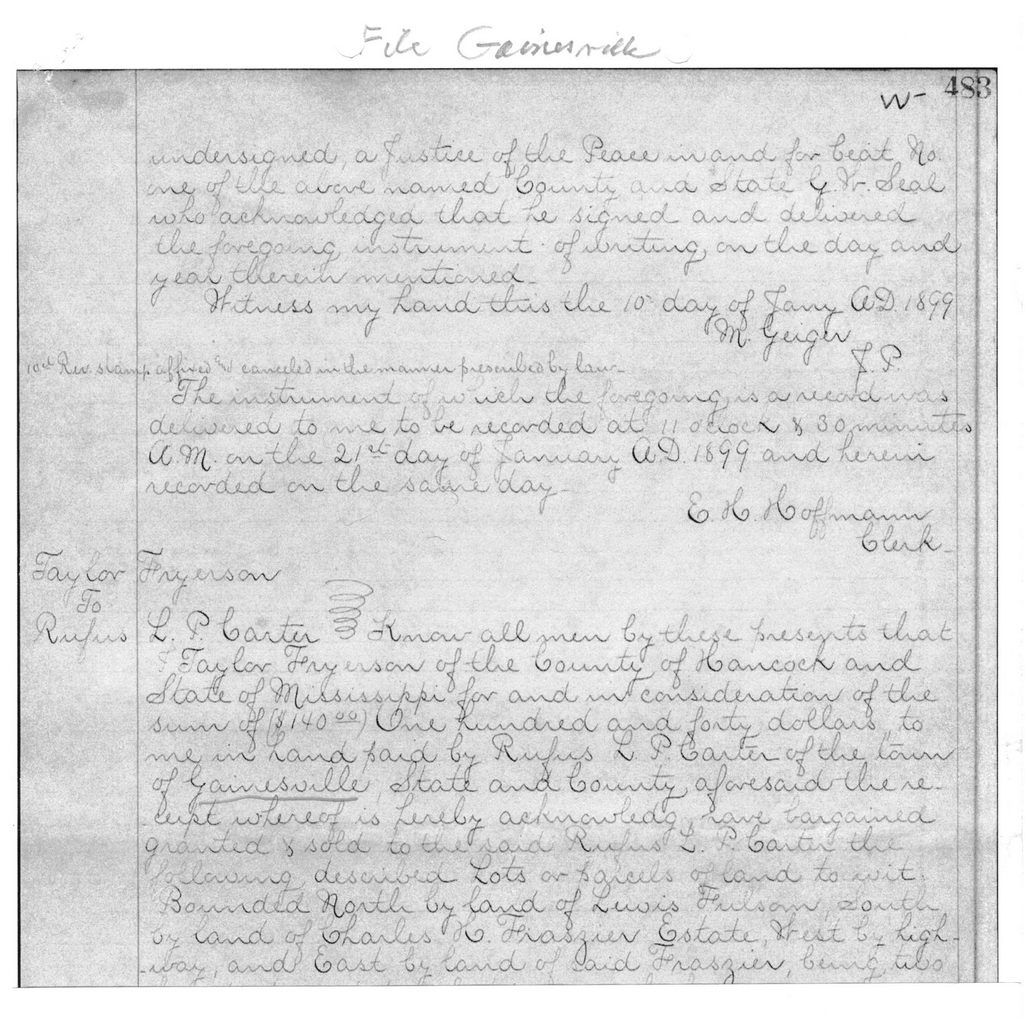 File Gainesville
W- 483
undersigned, a Justice of the Peace in and for beat No.
one of the above named County and State G. W. Seal
who acknowledged that he signed and delivered
the foregoing instrument of writing, on the day and
year therein mentioned_
Witness my hand this the 10 day of Jany A.D. 1899
M. Geiger
J. P.
10ct Rev. stamp affixed & canceled in the manner prescribed by law_
The instrument of which the foregoing is a record was
delivered to me to be recorded at 11 oclock & 30 minutes
A.M. on the 21st day of January A.D. 1899 and herein
recorded on the same day_
E. H. Hoffmann
Clerk_
Taylor Fryerson
To
Rufus L. P. Carter Know all men by these presents that
I Taylor Fryerson of the County of Hancock and
State of Mississippi for and in consideration of the
sum of ($140 00) One hundred and forty dollars, to
me in hand paid by Rufus L P. Carter of the town
of Gainesville, State and County, aforesaid the re-
-ceipt whereof is hereby acknowledg, have bargained
granted & sold to the said Rufus L. P. Carter the
following described Lots or parcels of land to wit.
Bounded North by land of Lewis Fulsom, South
by land of Charles H. Fraszier Estate, West by high-
-way, and East by land of said Fraszier, being two